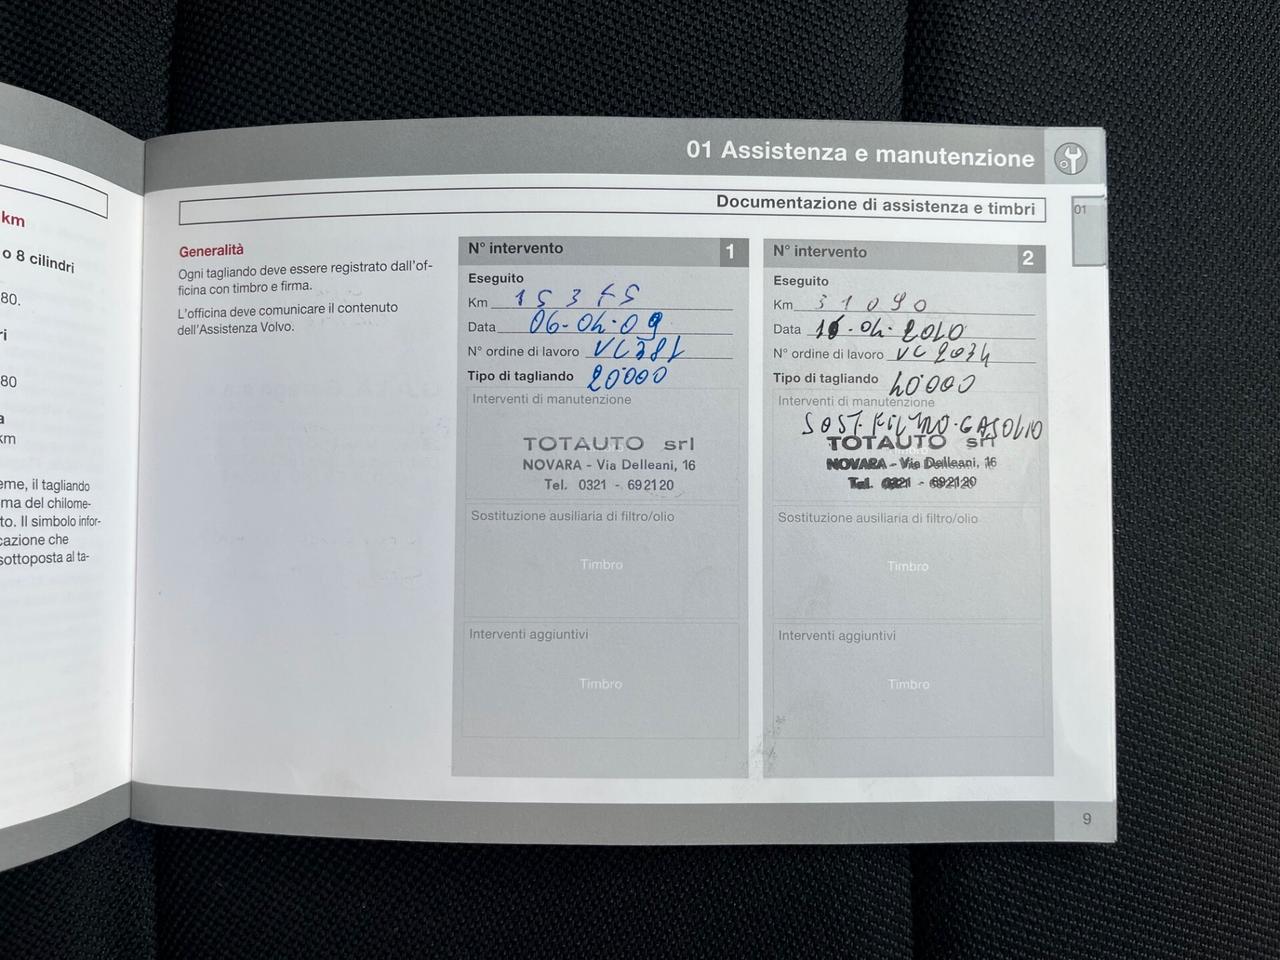 km
o 8 cilindri
80.
ri
80
a
km
eme, il tagliando
ma del chilome-
to. Il simbolo infor-
cazione che
sottoposta al ta-
01 Assistenza e manutenzione
Documentazione di assistenza e timbri
01
Generalità
Ogni tagliando deve essere registrato dall'of-
ficina con timbro e firma.
L'officina deve comunicare il contenuto
dell'Assistenza Volvo.
N° intervento 1
Eseguito
Km
Data 06-04-09
N° ordine di lavoro VC381
Tipo di tagliando 20'000
Interventi di manutenzione
TOTAUTO srl
NOVARA - Via Delleani, 16
Tel. 0321 - 692120
Sostituzione ausiliaria di filtro/olio
Timbro
Interventi aggiuntivi
Timbro
N° intervento 2
Eseguito
Km 31090
Data 16-04-2010
N° ordine di lavoro VC2034
Tipo di tagliando 40'000
Interventi di manutenzione
SOST. FILTRO-GASOLIO
TOTAUTO srl
NOVARA - Via Delleani, 16
Tel. 0321 - 692120
Sostituzione ausiliaria di filtro/olio
Timbro
Interventi aggiuntivi
Timbro
9